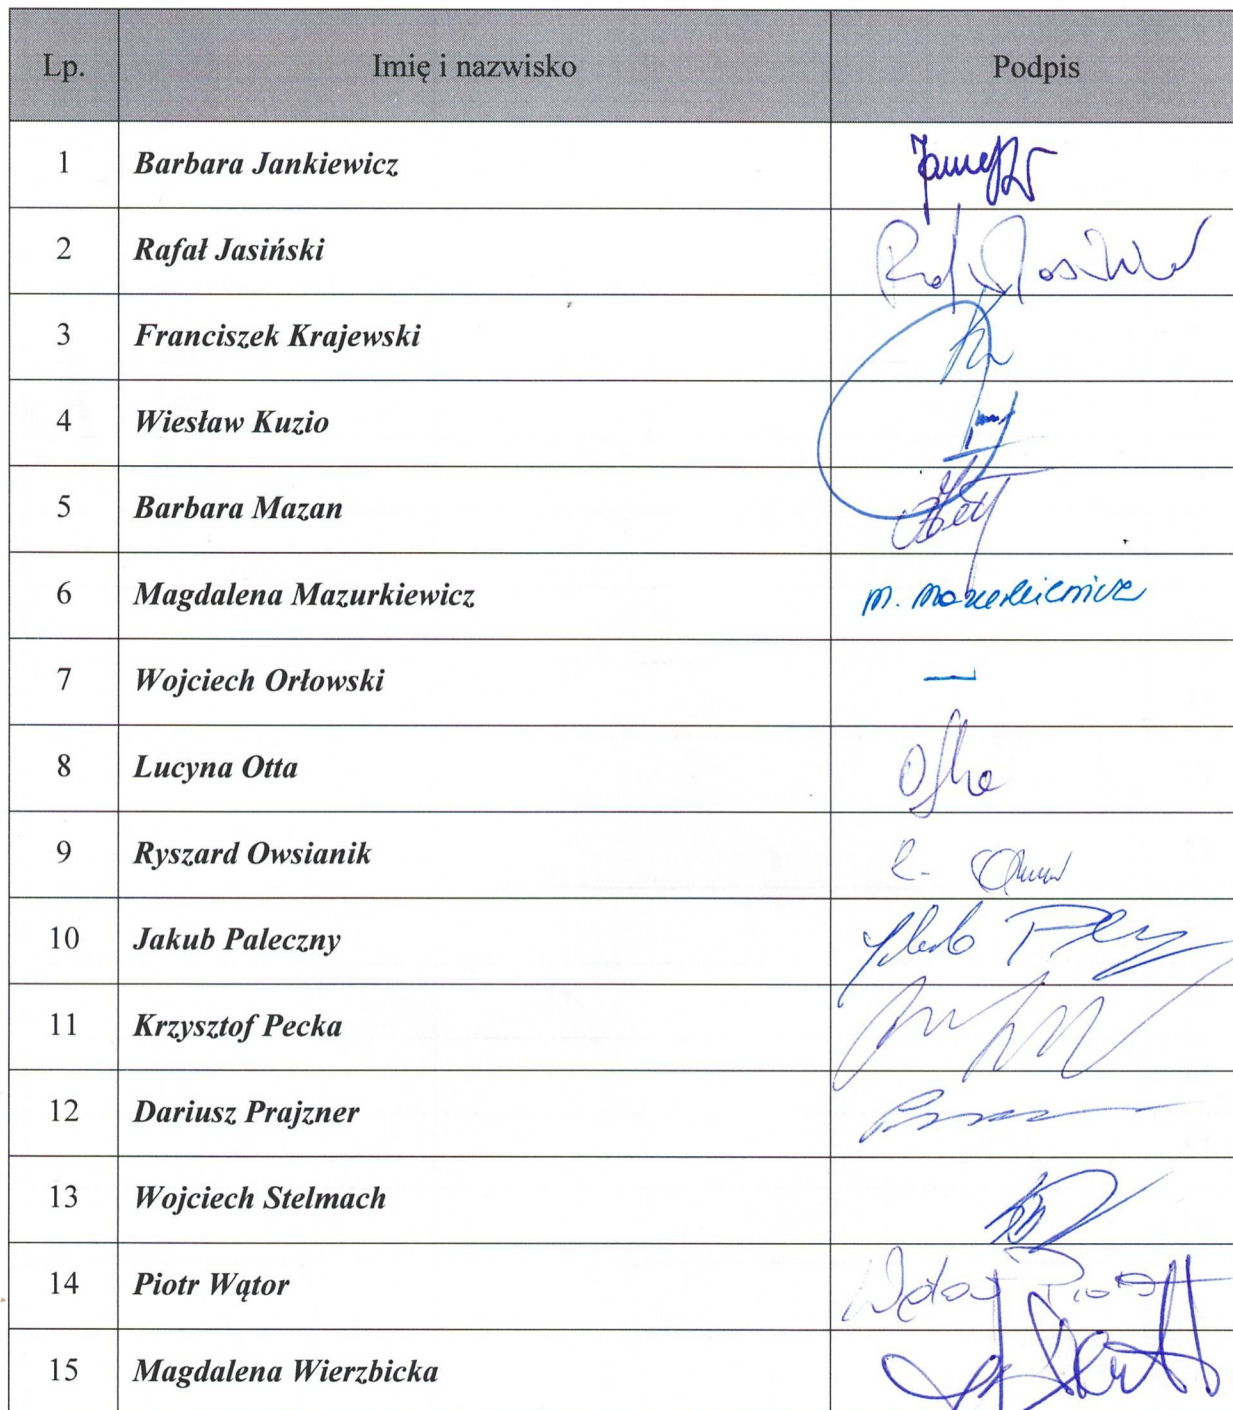 Lp. Imię i nazwisko Podpis
1 Barbara Jankiewicz
2 Rafał Jasiński
3 Franciszek Krajewski
4 Wiesław Kuzio
5 Barbara Mazan
6 Magdalena Mazurkiewicz M. Mazurkiewicz
7 Wojciech Orłowski —
8 Lucyna Otta Otta
9 Ryszard Owsianik
10 Jakub Paleczny
11 Krzysztof Pecka
12 Dariusz Prajzner
13 Wojciech Stelmach
14 Piotr Wątor Wątor Piotr
15 Magdalena Wierzbicka